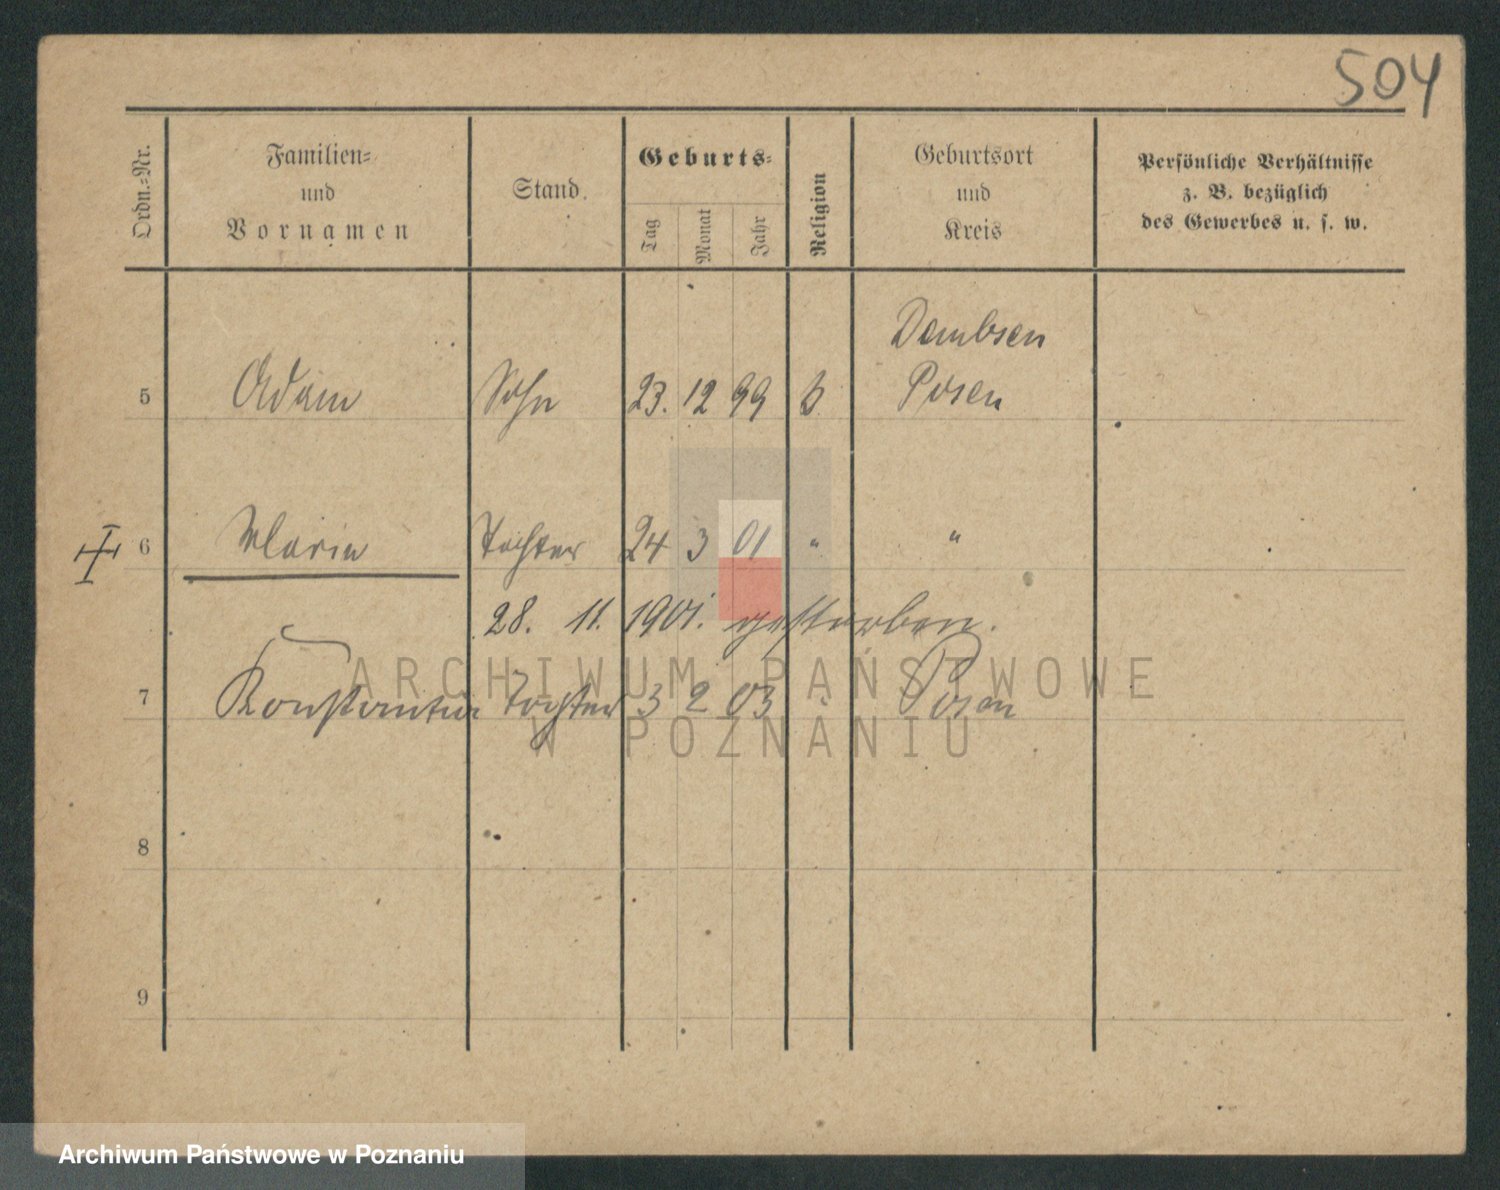 504
Ordn.=Nr.
Familien=
und
Vornamen
Stand.
Geburts=
Tag
Monat
Jahr
Religion
Geburtsort
und
Kreis
Persönliche Verhältnisse
z. B. bezüglich
des Gewerbes u. s. w.
Dembsen
5 Adam Sohn 23. 12 99 Posen
6 Maria Tochter 24 3 01 " "
28. 11. 1901. gestorben.
7 Konstantia Tochter 3 2 03 " Posen
8
9
ARCHIWUM PAŃSTWOWE
W POZNANIU
Archiwum Państwowe w Poznaniu